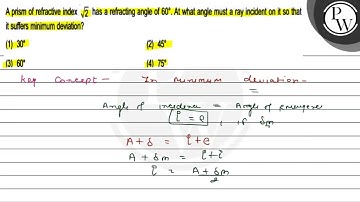 A prism of refractive index √2 has a refracting angle of 60°. At what angle must a ray incident on it so that
it suffers minimum deviation?
(1) 30° (2) 45°
(3) 60° (4) 75°
Key Concept - In minimum deviation -
Angle of incidence = Angle of emergence
i = e, if δm
A + δ = i + e
A + δm = i + i
i = A + δm / 2
PW